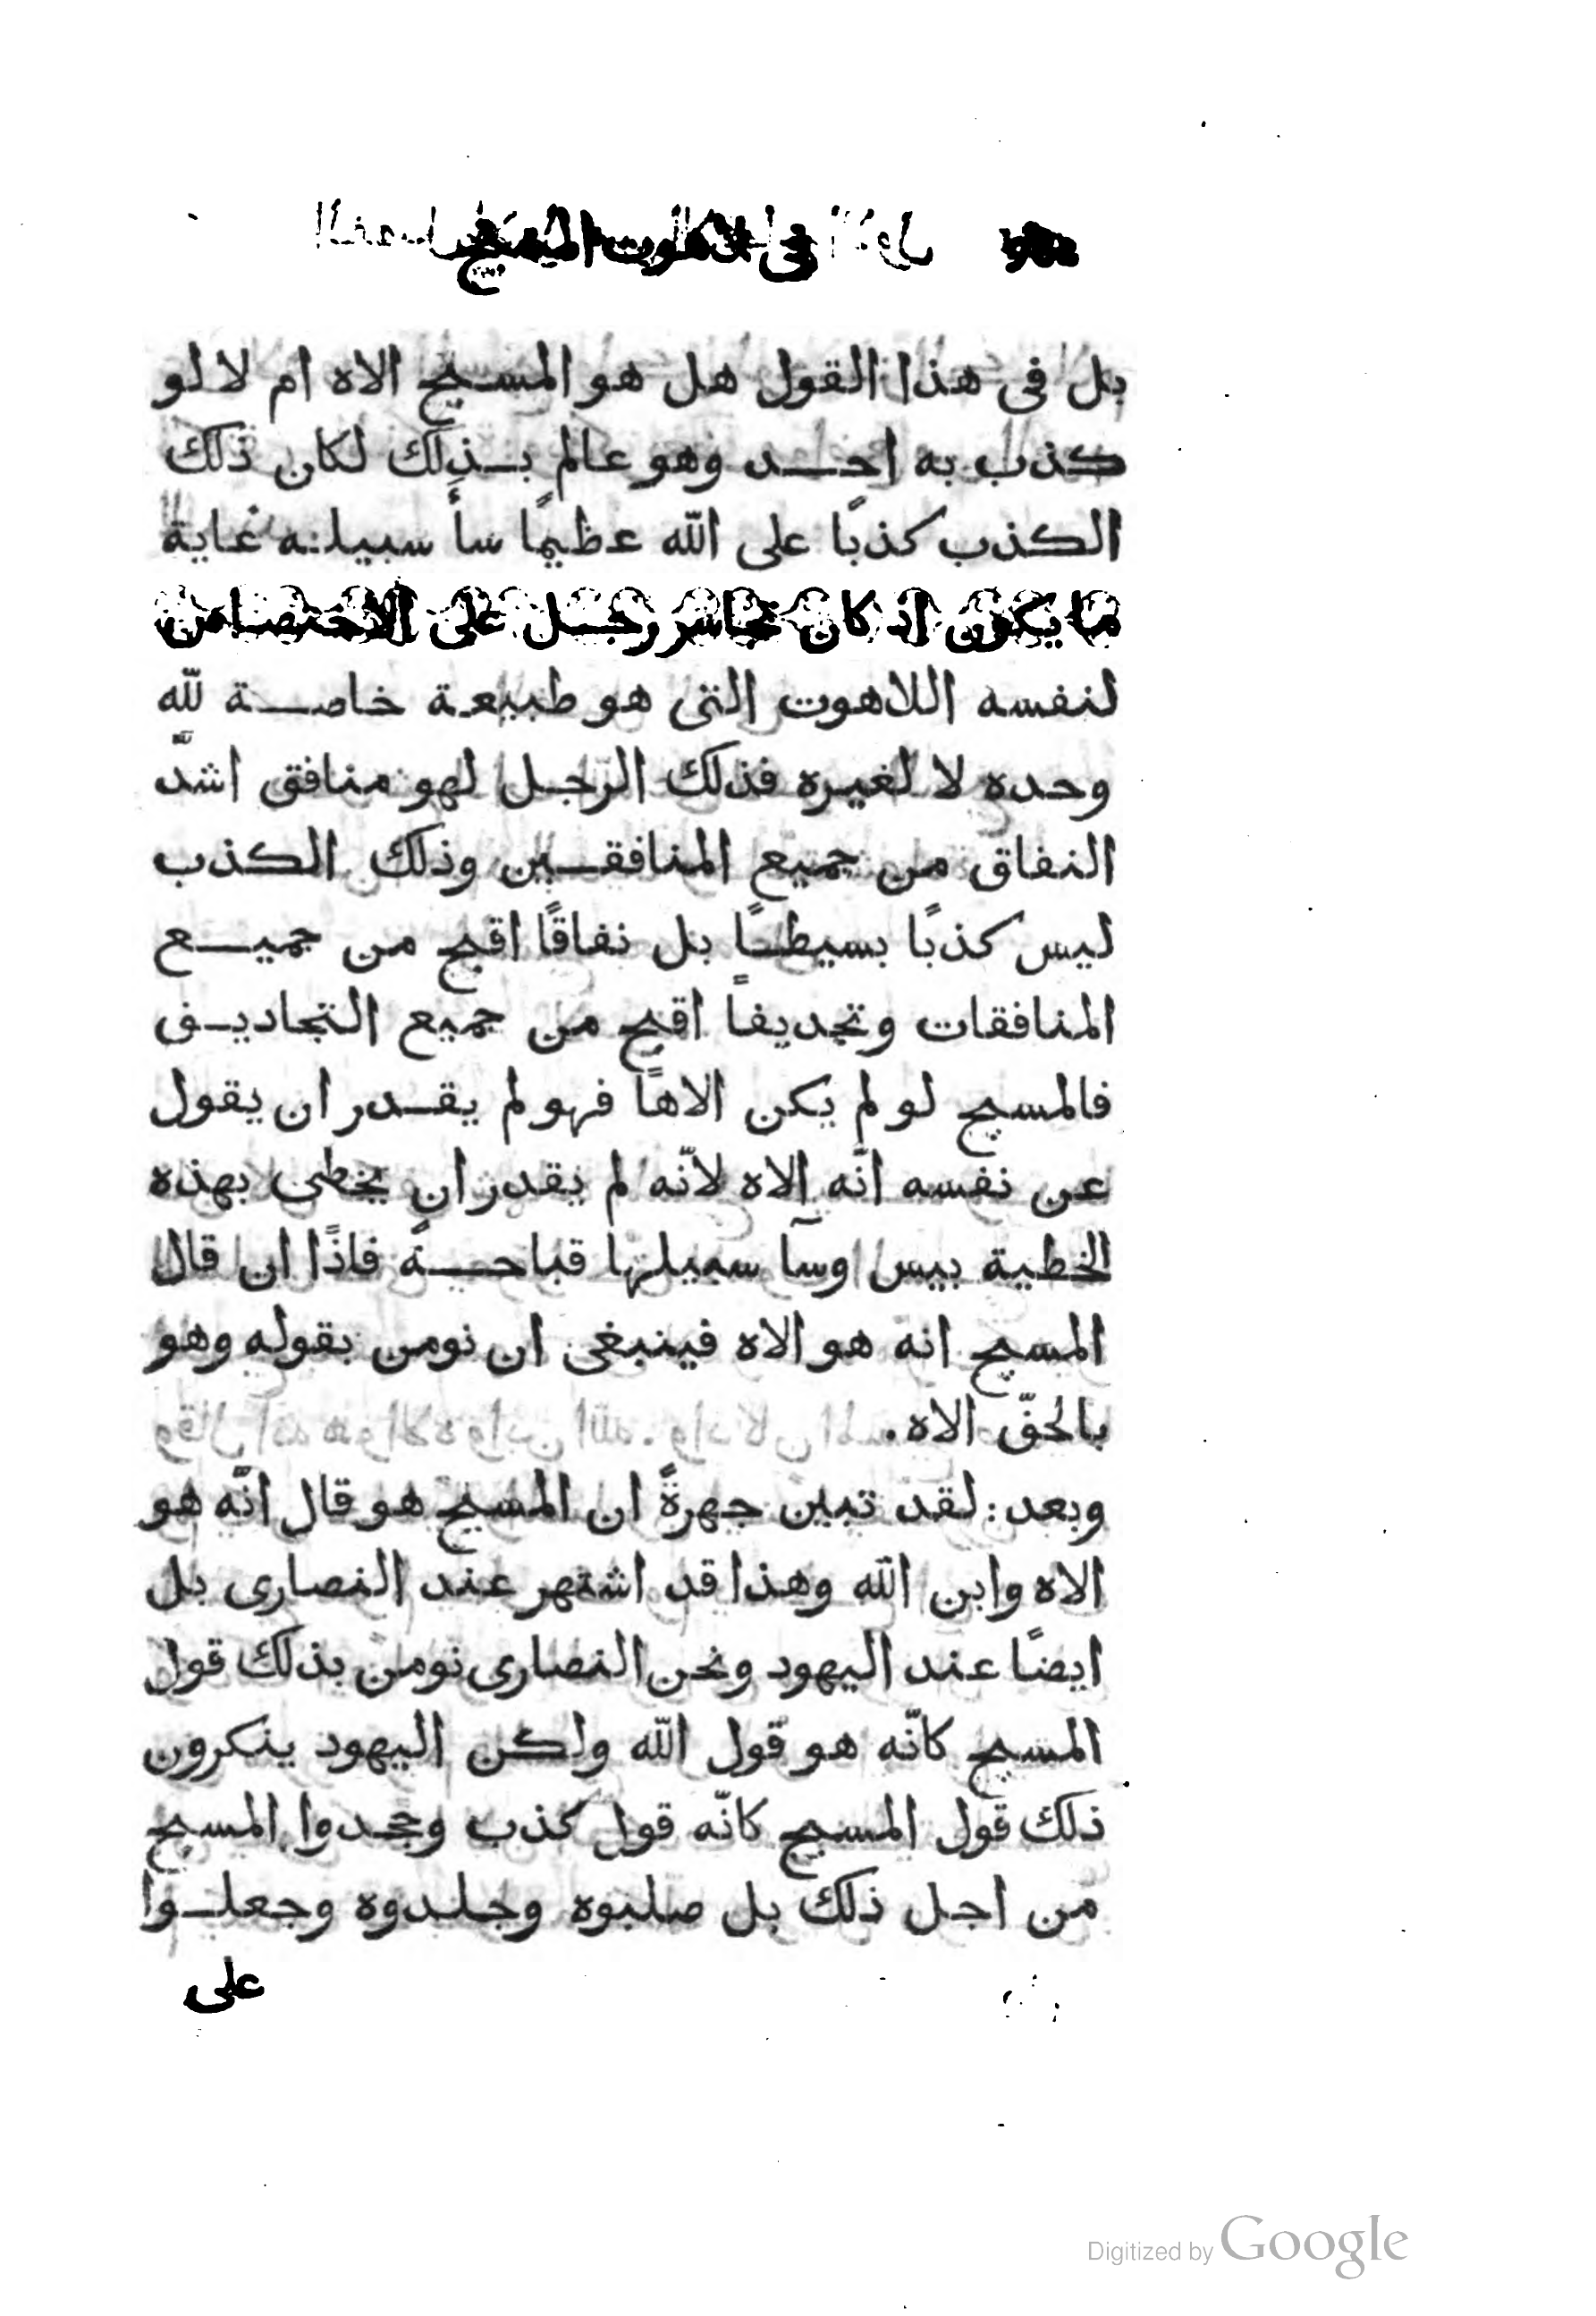 فى لاهوت المسيح
بل فى هذا القول هل هو المسيح الاه ام لا لو
كذب به احد وهو عالم بذلك لكان ذلك
الكذب كذبًا على اللّه عظيمًا سأ سبيلنه غاية
ما يكون اذ كان تجاسر رجل على الاختصاص
لنفسه اللاهوت التى هو طبيعة خاصة للّه
وحده لا لغيره فذلك الرّجل لهو منافق اشدّ
النفاق من جميع المنافقين وذلك الكذب
ليس كذبًا بسيطًا بل نفاقًا اقبح من جميع
المنافقات وتجديفاً اقبح من جميع التجاديف
فالمسيح لو لم يكن الاهًا فهو لم يقدر ان يقول
عن نفسه انّه الاه لانّه لم يقدر ان يخطى بهذه
الخطية بيس وسآ سبيلها قباحةً فاذًا ان قال
المسيح انه هو الاه فينبغى ان نومن بقوله وهو
بالحقّ الاه.
وبعد: لقد تبين جهرةً ان المسيح هو قال انّه هو
الاه وابن اللّه وهذا قد اشتهر عند النصارى بل
ايضًا عند اليهود ونحن النصارى نومن بذلك قول
المسيح كانّه هو قول اللّه ولكن اليهود ينكرون
ذلك قول المسيح كانّه قول كذب وجحدوا المسيح
من اجل ذلك بل صلبوه وجلدوه وجعلوا
على
Digitized by Google